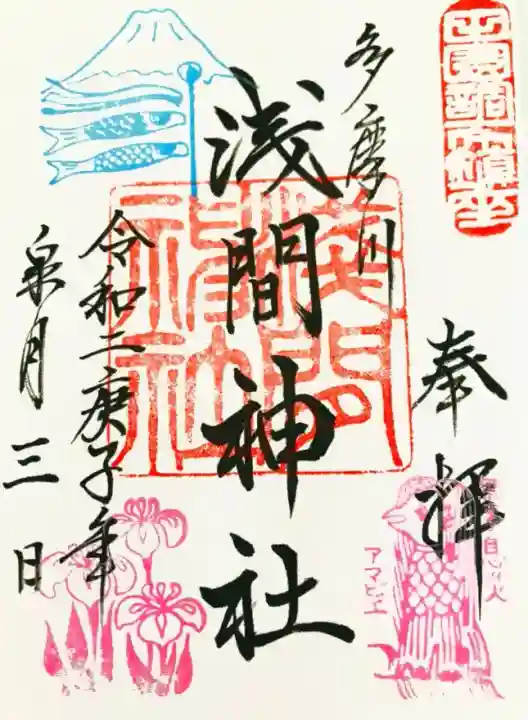 奉拝
アマビエ
多摩川
浅間神社
淺間神社
令和二庚子年
皐月三日